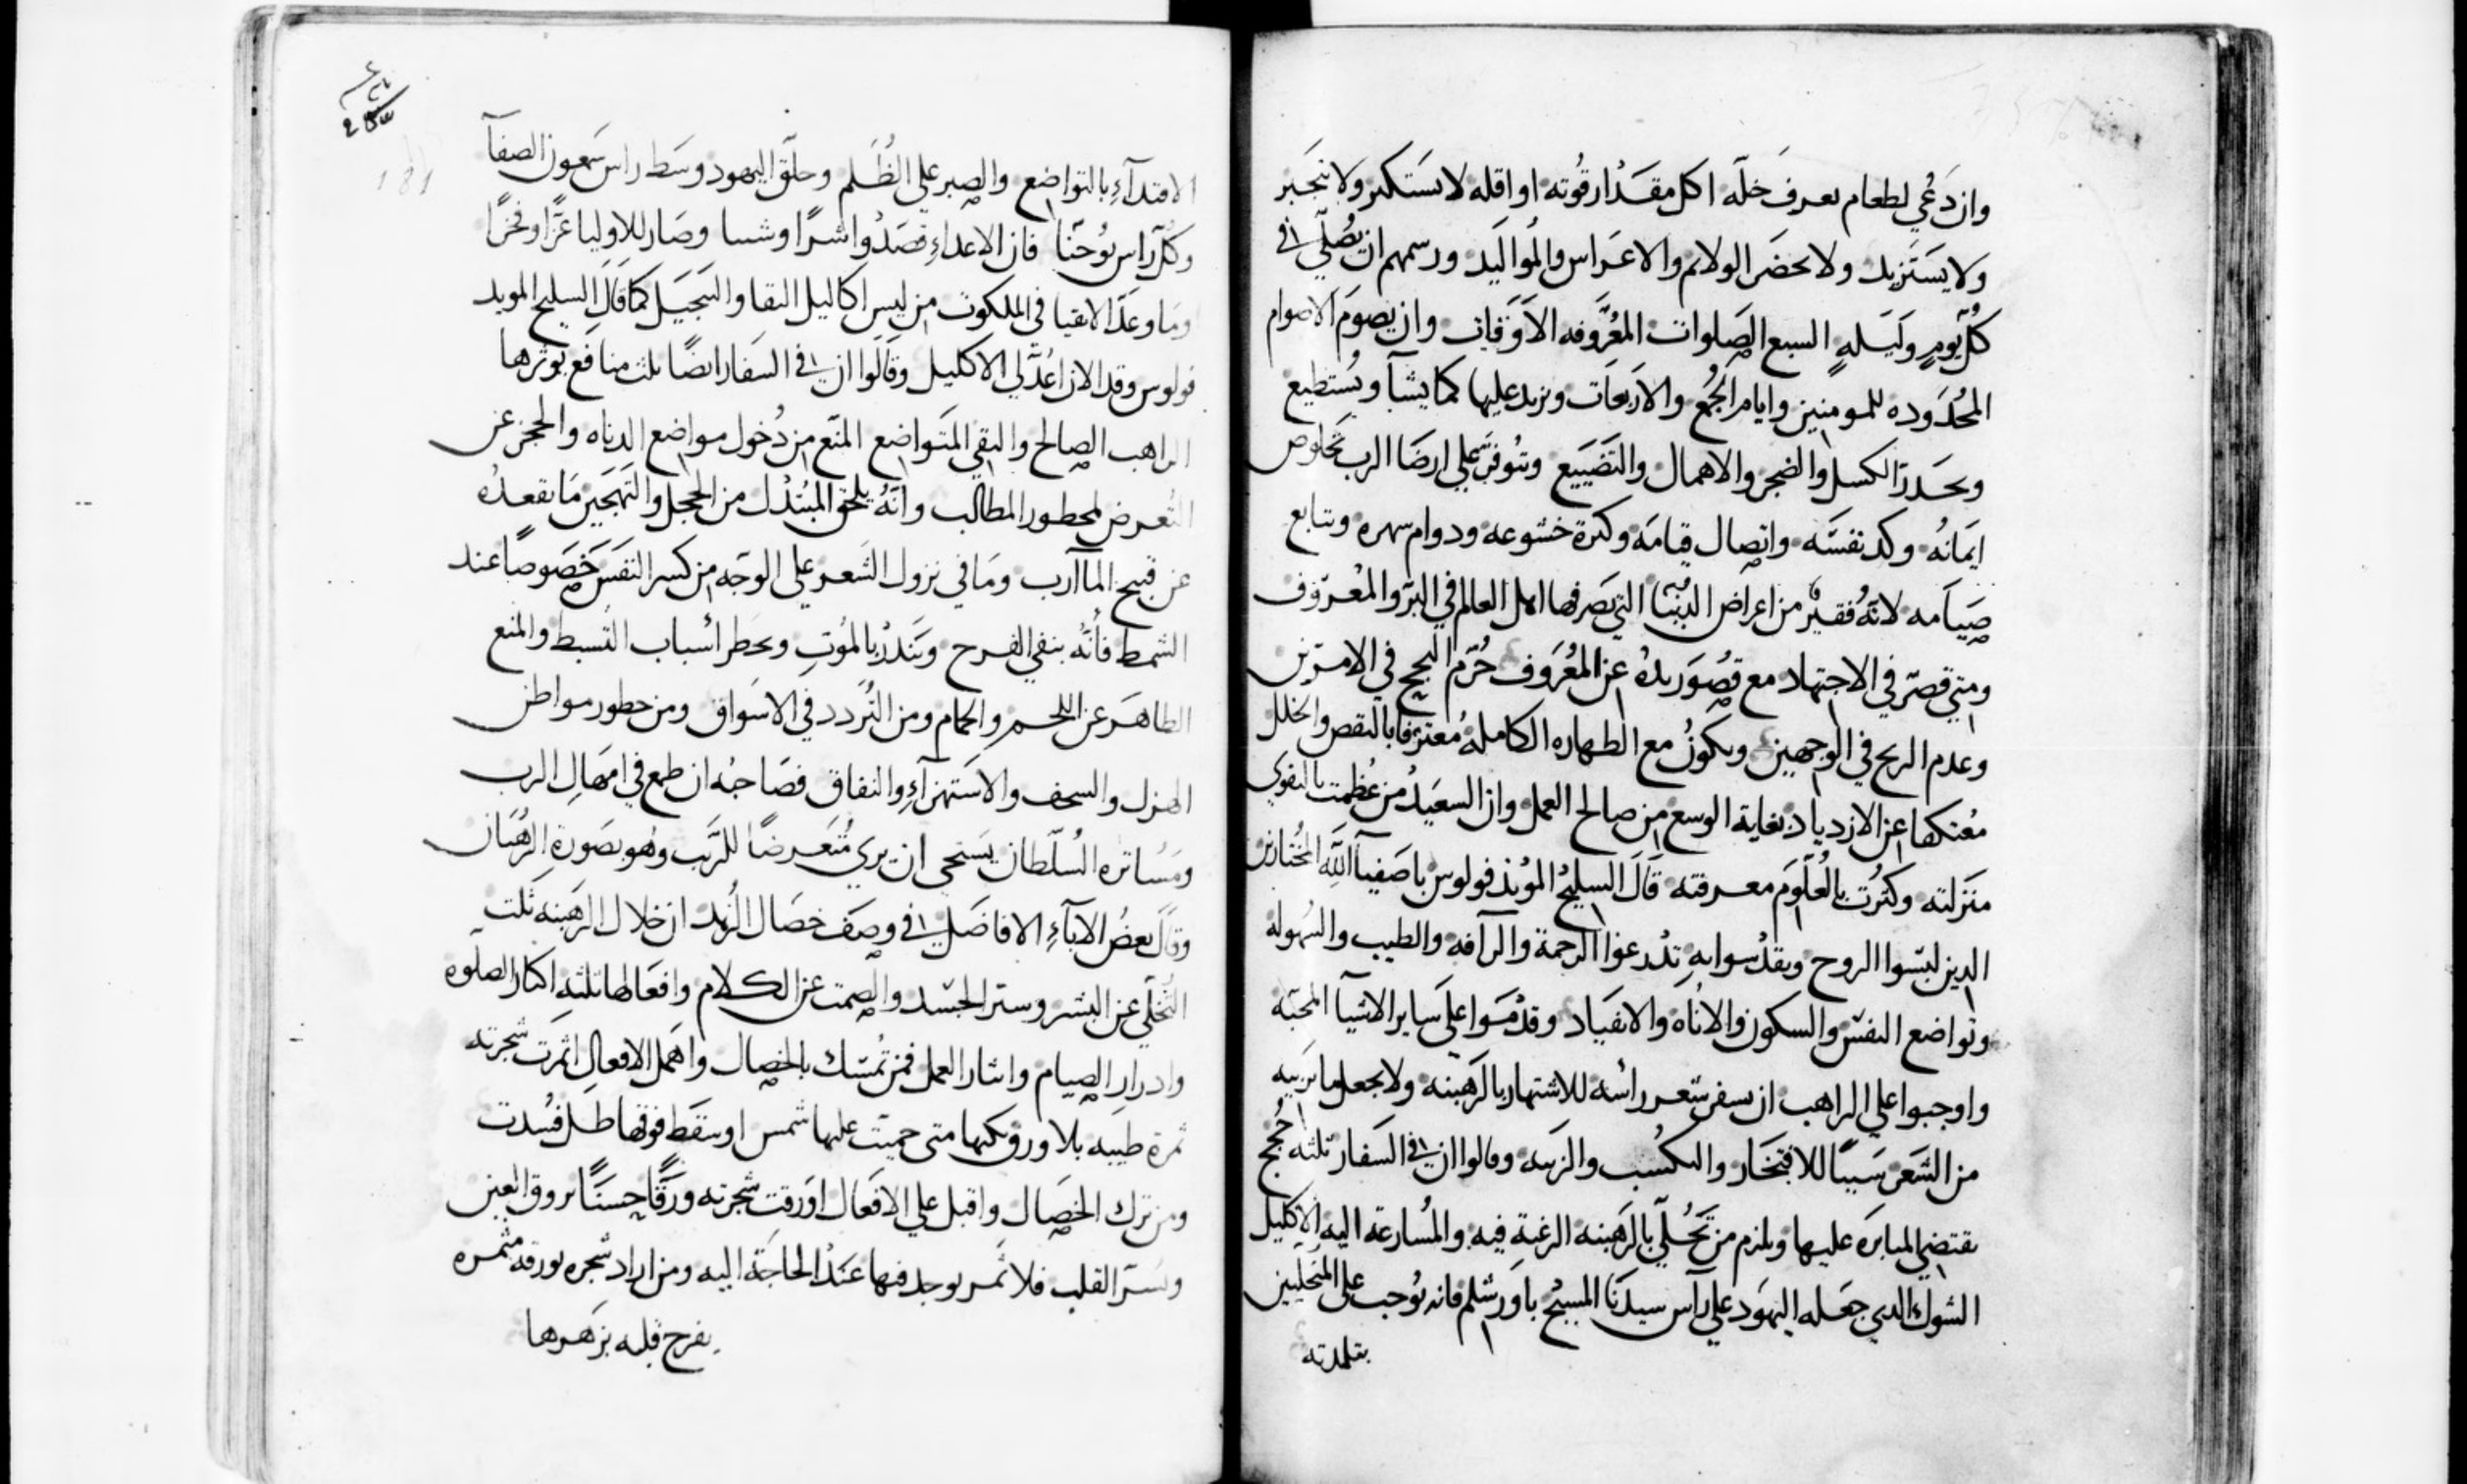 وان دعي لطعام يعرف خلّه اكل مقدار قوته او اقله لا يستكبر ولا يتجبر
ولا يستزيد ولا يحضر الولائم والاعراس والمواليد ورسمهم ان يصلي في
كل يوم وليله السبع الصلوات المعروفه الاوقات وان يصوم الاصوام
المحدوده للمومنين وايام الجمع والاربعات ويزيد عليها كما يشآ ويستطيع
ويحدر الكسل والضجر والاهمال والتضييع ويتوفر على ارضا الرب بخلوص
ايمانه وكد نفسه واتصال قيامه وكثرة خشوعه ودوام سهره وتتابع
صيامه لانه فقير من اعراض الدنيا التي يصرفها اهل العالم في البر والمعروف
ومتى قصر في الاجتهاد مع قصور يده عن المعروف حُرم النجح في الامرين
وعدم الربح في الوجهين ويكون مع الطهاره الكامله معترفا بالنقص والخلل
معنكها عن الازدياد بغاية الوسع من صالح العمل وان السعيد من عظمت بالتقوى
منزلته وكثرت بالعلوم معرفته قال السليح المويد فولوس يا صفيآ الله المختارين
الدين لبسوا الروح وبقدسوابه تدرعوا الرحمة والرآفه والطيب والسهوله
وتواضع النفس والسكون والاناه والانقياد وقدموا على ساير الاشيآ المحبه
واوجبوا على الراهب ان يسفر شعر راسه للاشتهار بالرهبنه ولا يجعل ما يربيه
من الشعر سببًا للافتخار والتكسب والزينه وقالوا ان في السفار ثلثه حُجج
يقتضي المثابره عليها ويلزم من تحلي بالرهبنه الرغبة فيه والمسارعة اليه الاكليل
الشوك الدي جعله اليهود على رآس سيدنا المسيح باورشلم فانه يوجب على المتحليين
بتلمدته
الاقتدآء بالتواضع والصبر على الظلم وحلق اليهود وسط راس شمعون الصفآ
وكل راس يوحنا فان الاعداء قصدوا شرًا وشينا وصار للاوليا عزًا وفخرًا
وما وعد الاتقيا في الملكوت من لبس اكاليل البقا والتبجيل كما قال السليح المويد
فولوس وقد الان اعد لي الاكليل وقالوا ان في السفار ايضًا ثلث منافع يوثرها
الراهب الصالح والتقي المتواضع المنع من دخول مواضع الدناه والحجز عن
التعرض لمحطور المطالب وانه يلحق المبتدل من الخجل والتهجين ما يقعده
عن قبيح المآرب وما في نزول الشعر على الوجه من كسر النفس خصوصًا عند
الشمط فانه ينفي الفرح ويندر بالموت ويحطر اسباب التبسط والمنع
الطاهر عن اللحم والحمام ومن التردد في الاسواق ومن حطور مواطن
الهزل والسخف والاستهزآء والنفاق فصاحبه ان طمع في امهال الرب
ومساتره السلطان يستحي ان يري متعرضًا للريب وهو بصورة الرهبان
وقال بعض الابآء الافاضل في وصف خصال الزهد ان خلال الرهبنه ثلث
التخلي عن البشر وستر الجسد والصمت عن الكلام وافعالها ثلثه اكثار الصلوه
وادرار الصيام وايثار العمل فمن تمسك بالخصال واهمل الافعال اثمرت شجرته
ثمرة طيبه بلا ورق لكنها متى حميت عليها شمس او سقط فوقها طل فسدت
ومن ترك الخصال واقبل على الافعال اورقت شجرته ورقًا حسنًا يروق العين
ويسر القلب فلا ثمر يوجد فيها عند الحاجة اليه ومن اراد شجره مورقه مثمره
يفرح قلبه بزهرها
181